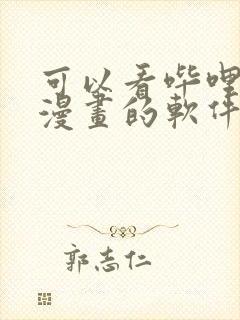 可以看哔哩
漫畫的軟件
郭志仁